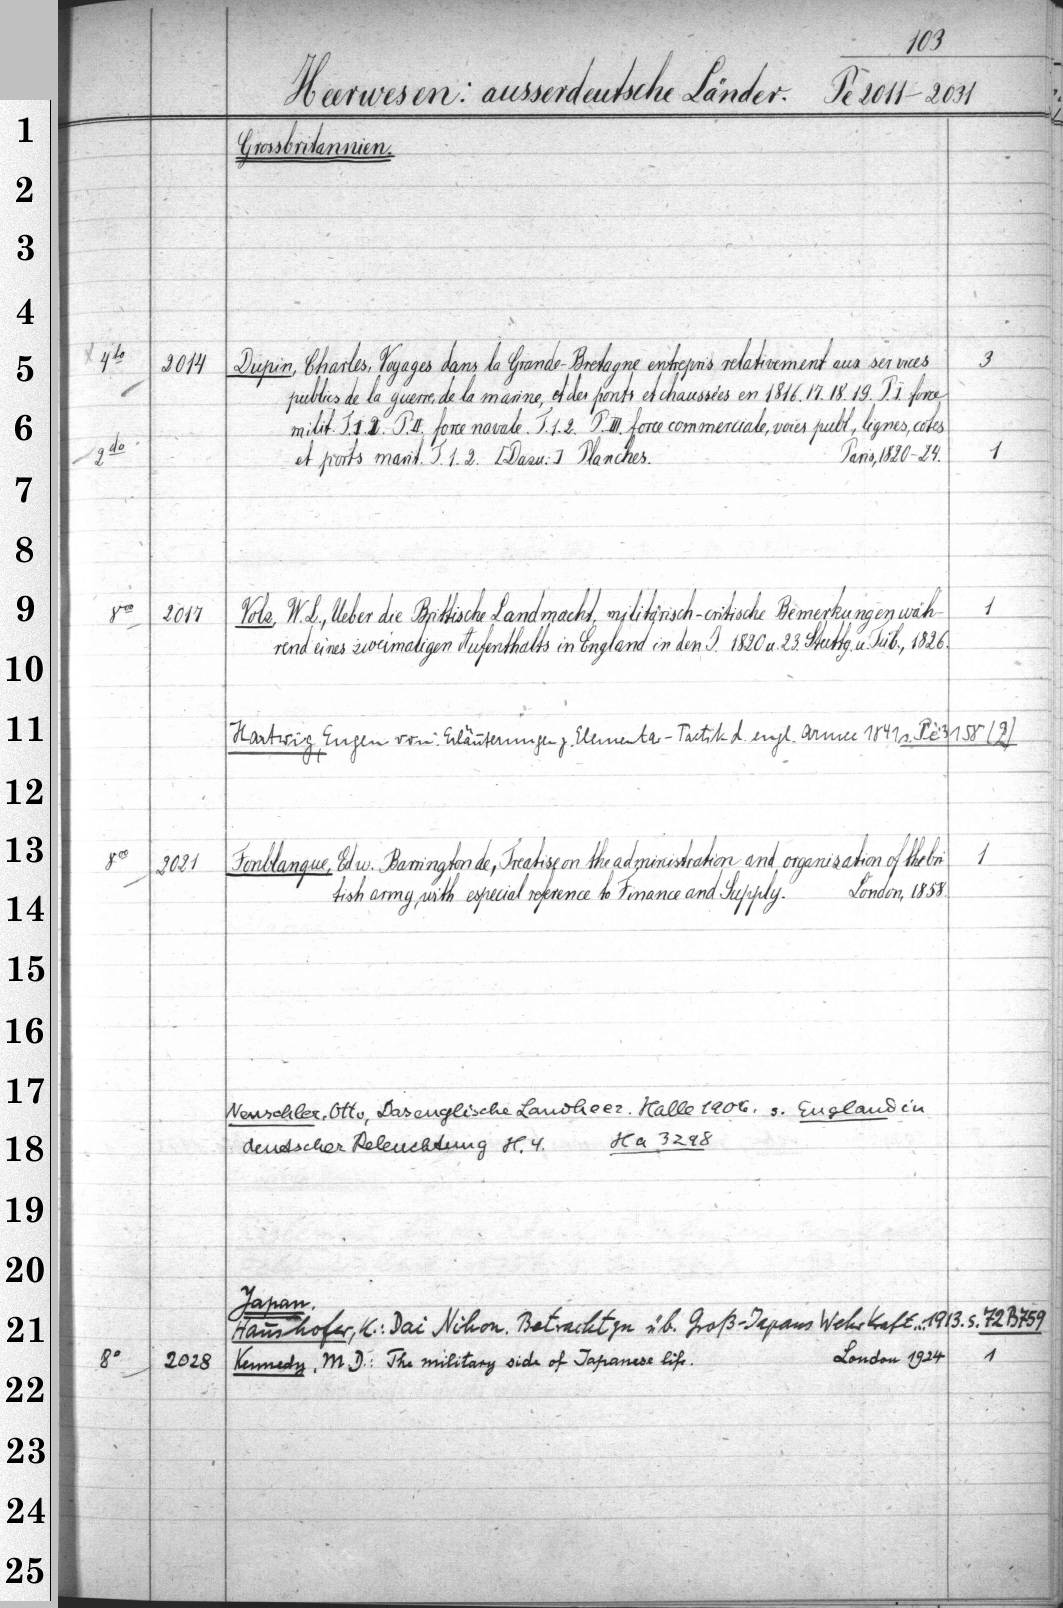 103
Heerwesen: ausserdeutsche Länder. Pe 2011-2031
1
Grossbritannien.
2
3
4
5 4to 2014 Dupin, Charles, Voyages dans la Grande-Bretagne entrepris relativement aux services 3
publics de la guerre, de la marine, et des ponts et chaussées en 1816. 17. 18. 19. P. I. force
6 milit. T. 1. 2. P. II. force navale. T. 1. 2. P. III. force commerciale, voies publ., lignes, côtes
2do et ports marit. T. 1. 2. [Dazu:] Planches. Paris, 1820-24. 1
7
8
9 8vo 2017 Volz, W. L., Ueber die Brittische Landmacht, militärisch-critische Bemerkungen wäh- 1
rend eines zweimaligen Aufenthalts in England in den J. 1820 u. 23. Stuttg. u. Tüb., 1826.
10
11 Hartwig, Eugen von: Erläuterungen z. Elementar-Tactik d. engl. Armee 1841 s. Pe 3158 (2)
12
13 8vo 2021 Fonblanque, Edw. Barrington de, Treatise on the administration and organization of the bri 1
tish army, with especial reference to Finance and Supply. London, 1858.
14
15
16
17
Neuschler, Otto, Das englische Landheer. Halle 1906. s. England in
18 deutscher Beleuchtung H. 4. Ha 3298
19
20
Japan.
21 Haushofer, K.: Dai Nihon. Betrachtgn üb. Groß-Japans Wehrkraft... 1913. s. 72 B 759
8° 2028 Kennedy, M. D.: The military side of Japanese life. London 1924 1
22
23
24
25